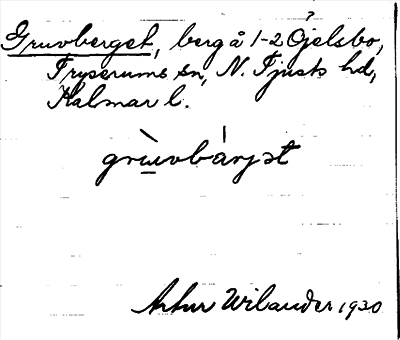 Gruvberget, berg å 1-2 Öjelsbo,
Tryserums sn, N. Tjusts hd,
Kalmar l.
grùvbárjət
Artur Wilander 1930